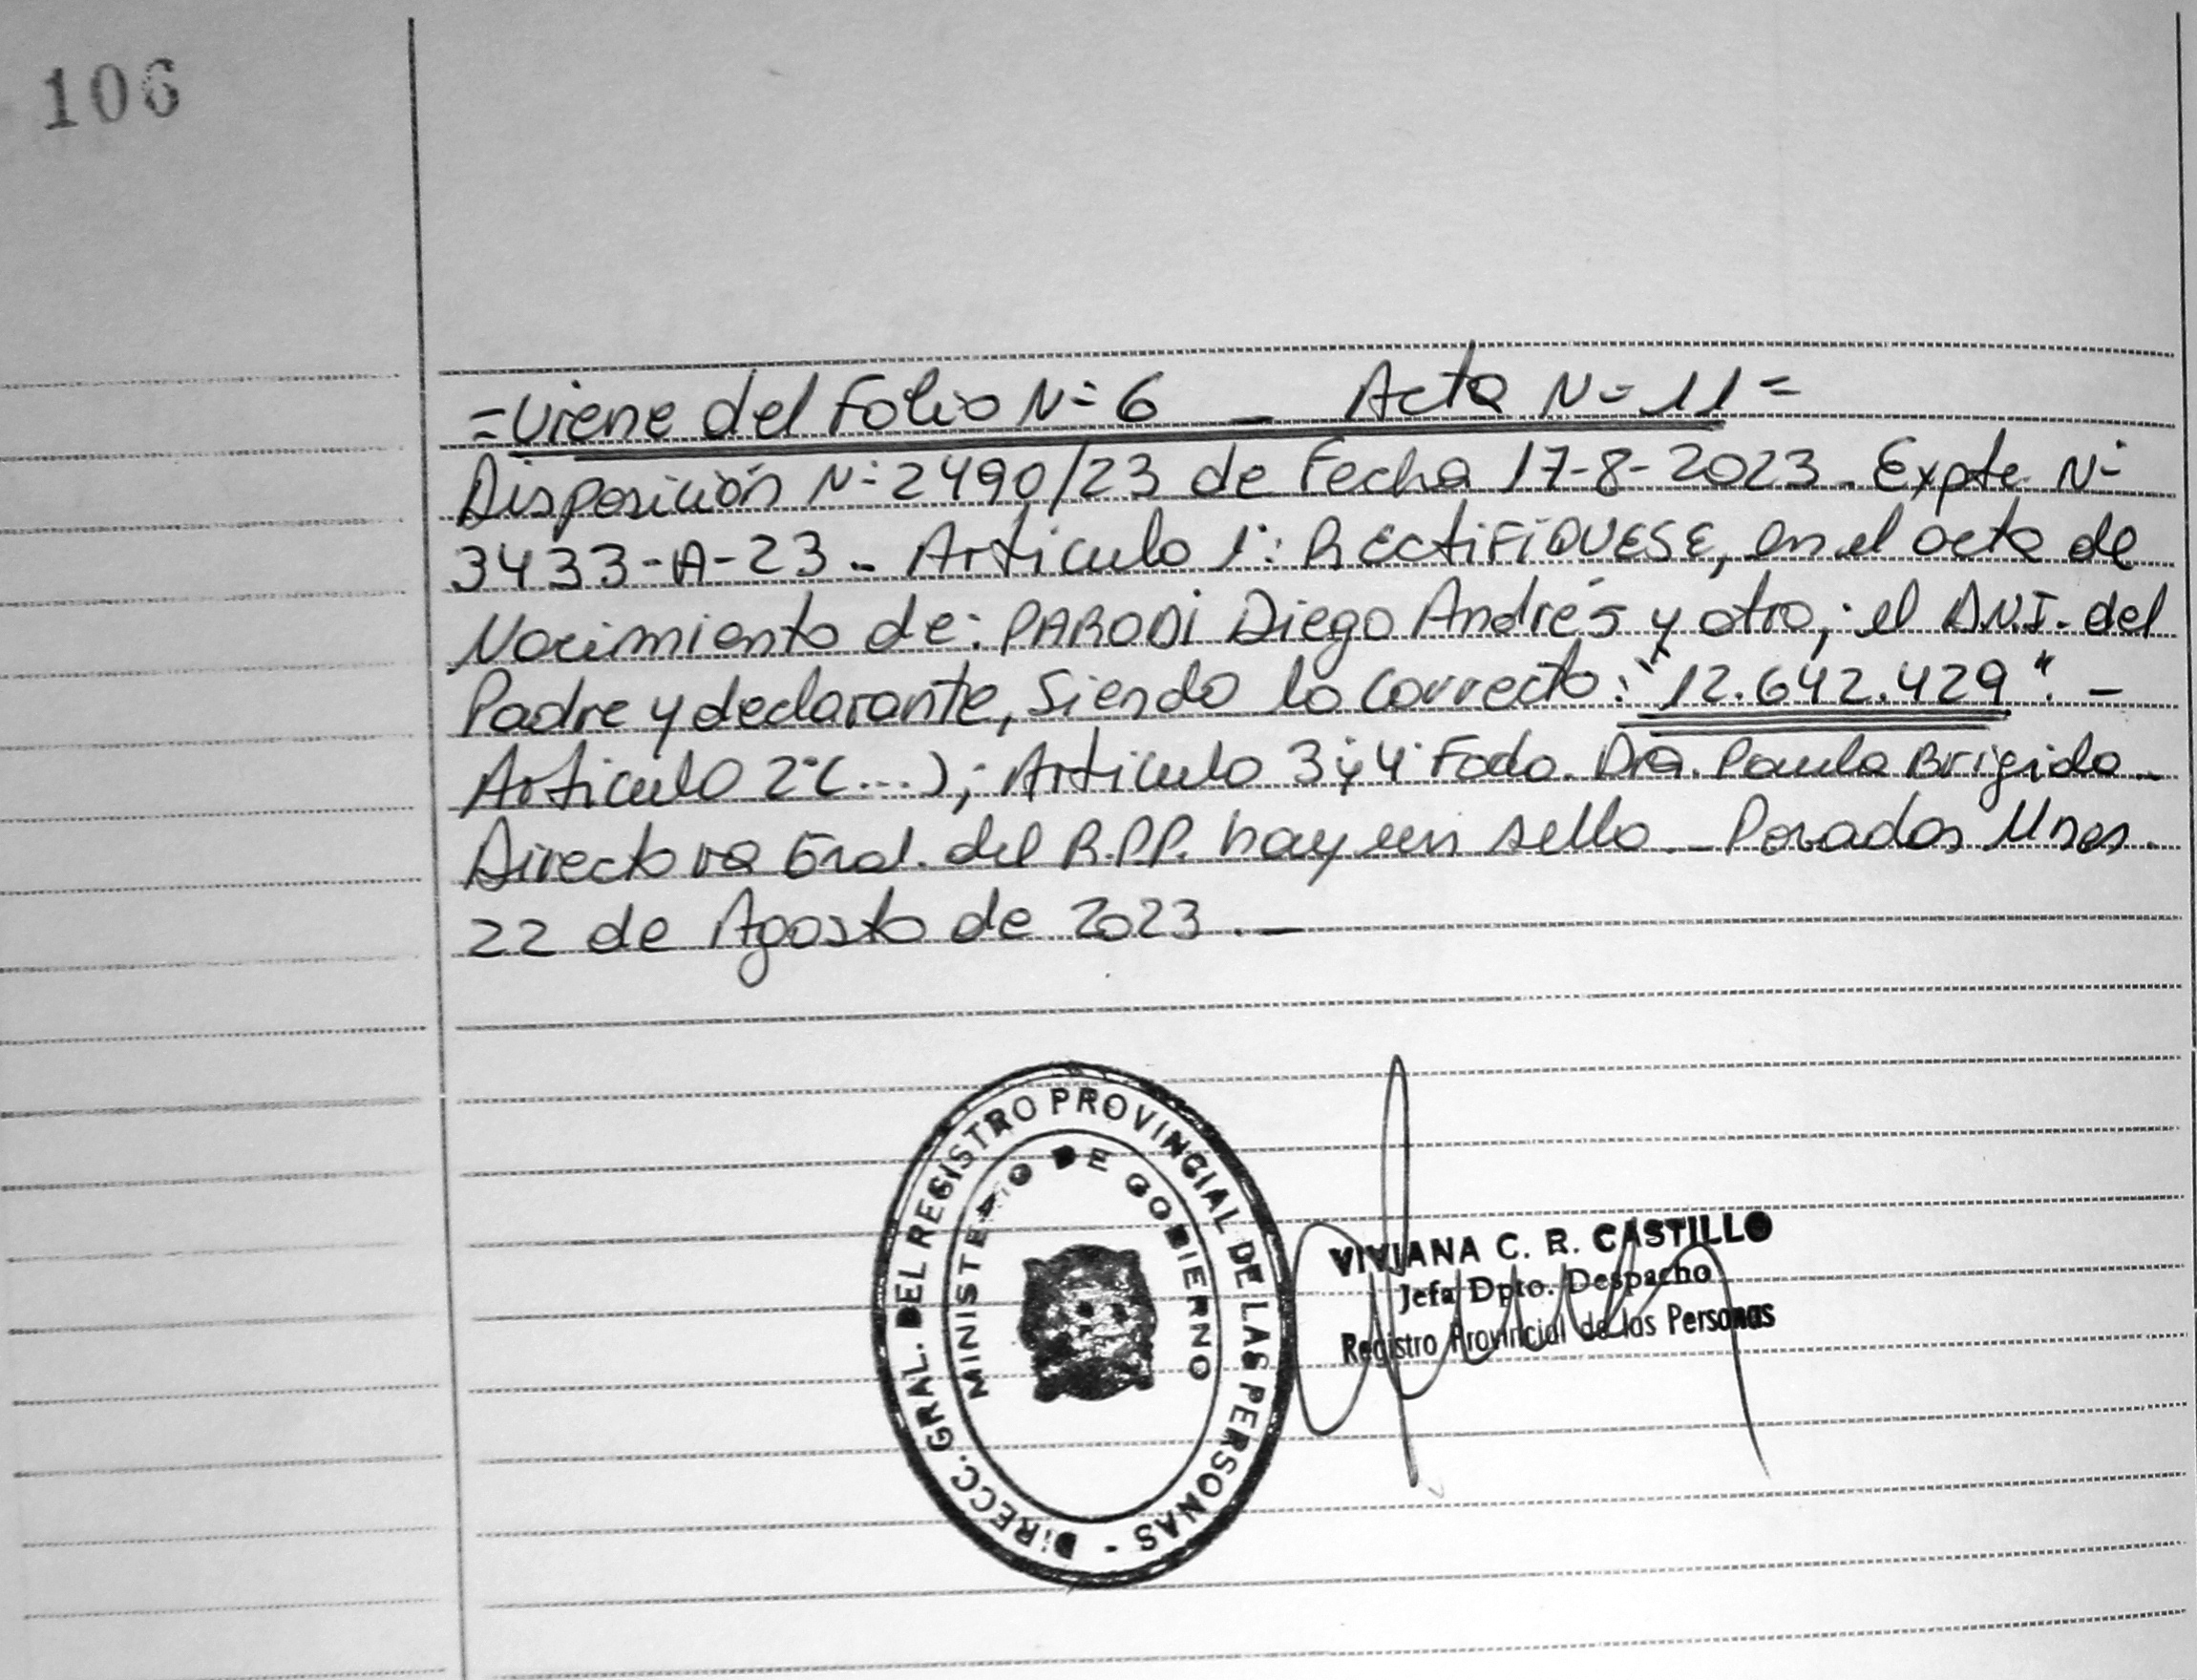 106
=Viene del Folio N° 6 - Acta N° 11=
Disposición N° 2490/23 de Fecha 17-8-2023. Expte N°
3433-A-23.- Articulo 1°: RECTIFIQUESE, en el acta de
Nacimiento de: PARODI Diego Andrés y otro; el D.N.I. del
Padre y declarante, Siendo lo Correcto: "12.642.429". -
Articulo 2°(...); Articulo 3° y 4° Fdo. Dra. Paula Brigido -
Directora Gral. del R.P.P. hay un sello.- Posadas Mnes.
22 de Agosto de 2023.-
DIRECC. GRAL. DEL REGISTRO PROVINCIAL DE LAS PERSONAS -
MINISTERIO DE GOBIERNO
VIVIANA C. R. CASTILLO
Jefa Dpto. Despacho
Registro Provincial de las Personas